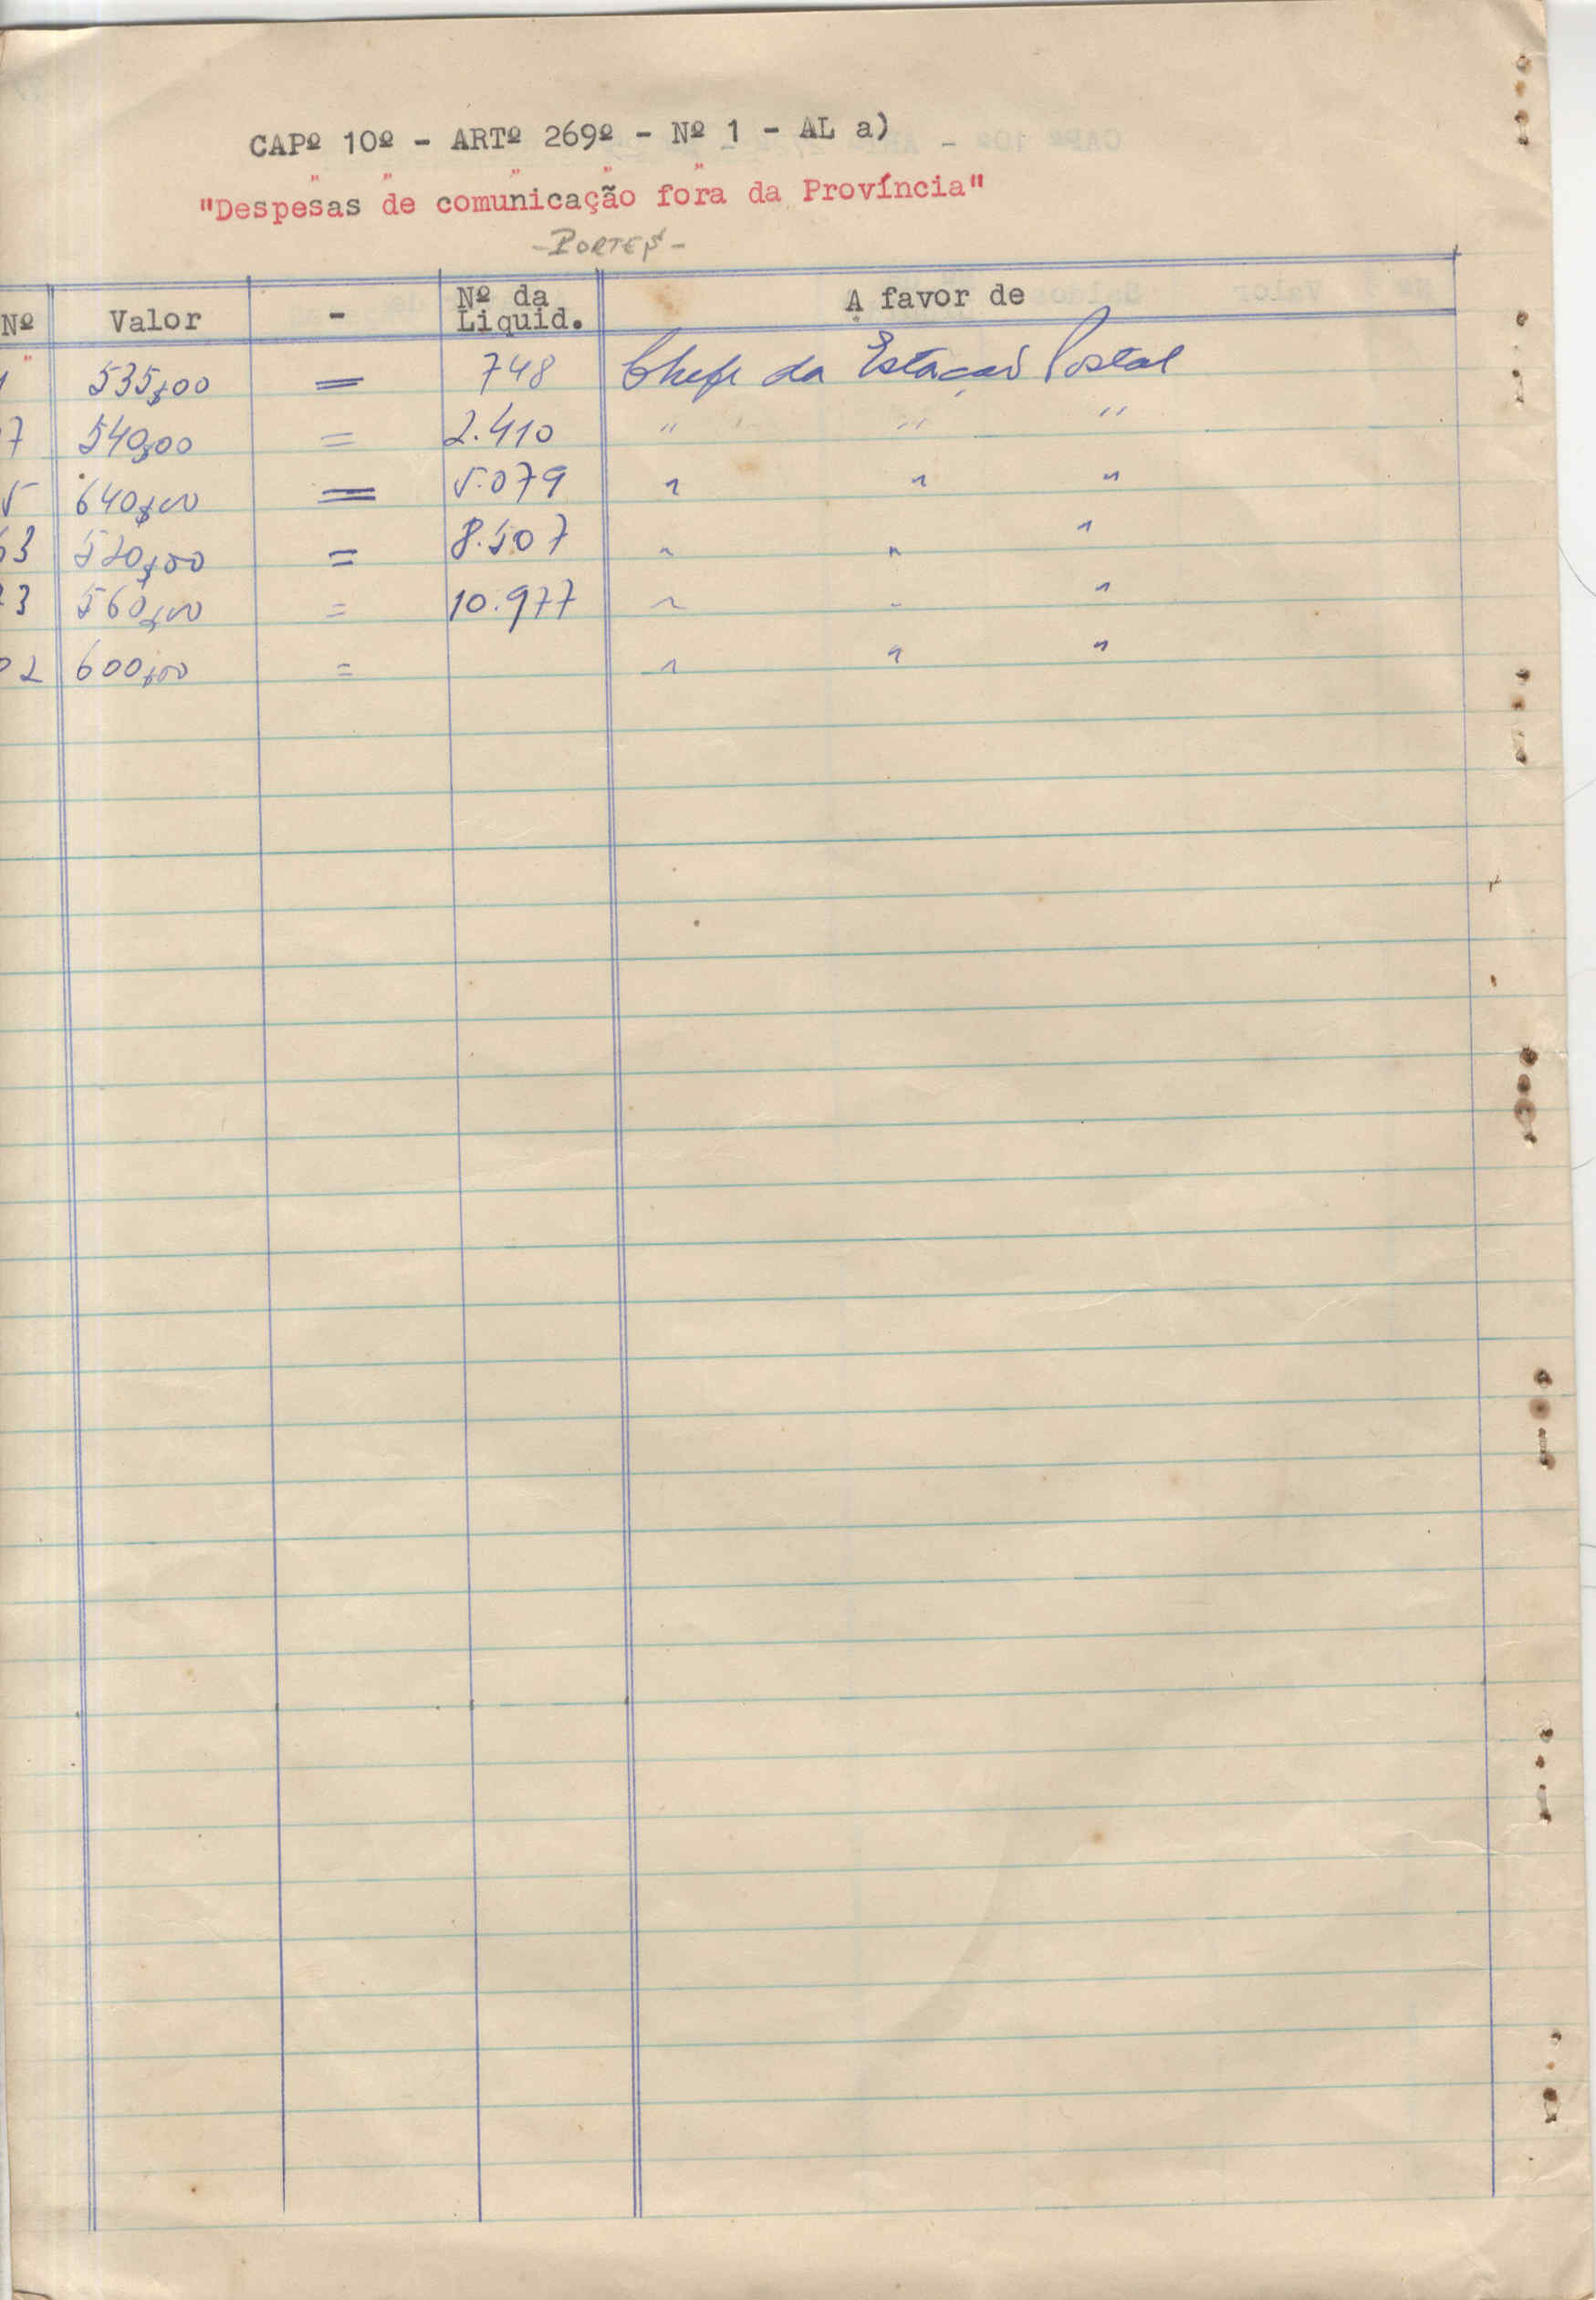 CAPº 10º - ARTº 269º - Nº 1 - AL a)
"Despesas de comunicação fora da Província"
- PORTES -
Nº Valor - Nº da Liquid. A favor de
1 535$00 = 748 Chefe da Estação Postal
7 540$00 = 2.410 " " "
5 640$00 = 5.079 " " "
63 520$00 = 8.507 " " "
3 560$00 = 10.977 " " "
02 600$00 = " " "